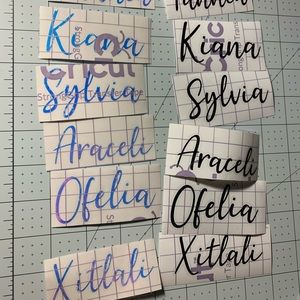 Tanner
Kiana
Kiana
Cricut
Sylvia
Sylvia
Araceli
Araceli
Ofelia
Ofelia
Xitlali
Xitlali